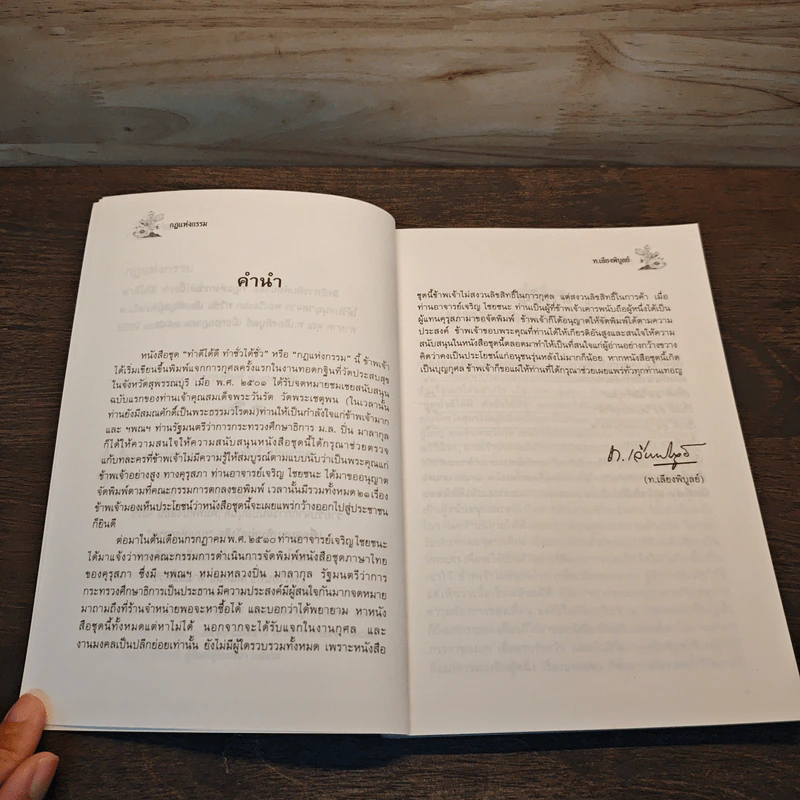 กฎแห่งกรรม
คำนำ
หนังสือชุด "ทำดีได้ดี ทำชั่วได้ชั่ว" หรือ "กฎแห่งกรรม" นี้ ข้าพเจ้า
ได้เริ่มเขียนขึ้นพิมพ์แจกการกุศลครั้งแรกในงานทอดกฐินที่วัดประสบสุข
ในจังหวัดสุพรรณบุรี เมื่อ พ.ศ. ๒๕๐๑ ได้รับจดหมายชมเชยสนับสนุน
ฉบับแรกของท่านเจ้าคุณสมเด็จพระวันรัต วัดพระเชตุพน (ในเวลานั้น
ท่านยังมีสมณศักดิ์เป็นพระธรรมวโรดม)ท่านให้เป็นกำลังใจแก่ข้าพเจ้ามาก
และ ฯพณฯ ท่านรัฐมนตรีว่าการกระทรวงศึกษาธิการ ม.ล. ปิ่น มาลากุล
ก็ได้ให้ความสนใจให้ความสนับสนุนหนังสือชุดนี้ได้กรุณาช่วยตรวจ
แก้บทละครที่ข้าพเจ้าไม่มีความรู้ให้สมบูรณ์ตามแบบนับว่าเป็นพระคุณแก่
ข้าพเจ้าอย่างสูง ทางคุรุสภา ท่านอาจารย์เจริญ ไชยชนะ ได้มาขออนุญาต
จัดพิมพ์ตามที่คณะกรรมการตกลงขอพิมพ์ เวลานั้นมีรวมทั้งหมด ๒๑ เรื่อง
ข้าพเจ้ามองเห็นประโยชน์ว่าหนังสือชุดนี้จะเผยแพร่กว้างออกไปสู่ประชาชน
ก็ยินดี
ต่อมาในต้นเดือนกรกฎาคม พ.ศ. ๒๕๑๐ ท่านอาจารย์เจริญ ไชยชนะ
ได้มาแจ้งว่าทางคณะกรรมการดำเนินการจัดพิมพ์หนังสือชุดภาษาไทย
ของคุรุสภา ซึ่งมี ฯพณฯ หม่อมหลวงปิ่น มาลากุล รัฐมนตรีว่าการ
กระทรวงศึกษาธิการเป็นประธาน มีความประสงค์มีผู้สนใจกันมากจดหมาย
มาถามถึงที่ร้านจำหน่ายพอจะหาซื้อได้ และบอกว่าได้พยายาม หาหนัง
สือชุดนี้ทั้งหมดแต่หาไม่ได้ นอกจากจะได้รับแจกในงานกุศล และ
งานมงคลเป็นปลีกย่อยเท่านั้น ยังไม่มีผู้ใดรวบรวมทั้งหมด เพราะหนังสือ
ท.เลียงพิบูลย์
ชุดนี้ข้าพเจ้าไม่สงวนลิขสิทธิ์ในการกุศล แต่สงวนลิขสิทธิ์ในการค้า เมื่อ
ท่านอาจารย์เจริญ ไชยชนะ ท่านเป็นผู้ที่ข้าพเจ้าเคารพนับถือผู้หนึ่งได้เป็น
ผู้แทนคุรุสภามาขอจัดพิมพ์ ข้าพเจ้าก็ได้อนุญาตให้จัดพิมพ์ได้ตามความ
ประสงค์ ข้าพเจ้าขอบพระคุณที่ท่านได้ให้เกียรติอันสูงและสนใจให้ความ
สนับสนุนในหนังสือชุดนี้ตลอดมาทำให้เป็นที่สนใจแก่ผู้อ่านอย่างกว้างขวาง
คิดว่าคงเป็นประโยชน์แก่อนุชนรุ่นหลังไม่มากก็น้อย หากหนังสือชุดนี้เกิด
เป็นบุญกุศล ข้าพเจ้าก็ขอแผ่ให้ท่านที่ได้กรุณาช่วยเผยแพร่ทั่วทุกท่านเทอญ
ท. เลียงพิบูลย์
(ท.เลียงพิบูลย์)